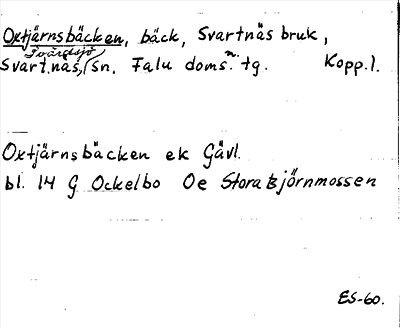 Oxtjärnsbäcken, bäck, Svartnäs bruk,
Svärdsjö
Svartnäs, sn. Falu doms. n. tg. Kopp. l.
Oxtjärnsbäcken ek Gävl.
bl. 14 G Ockelbo Oe Stora Björnmossen
ES-60.